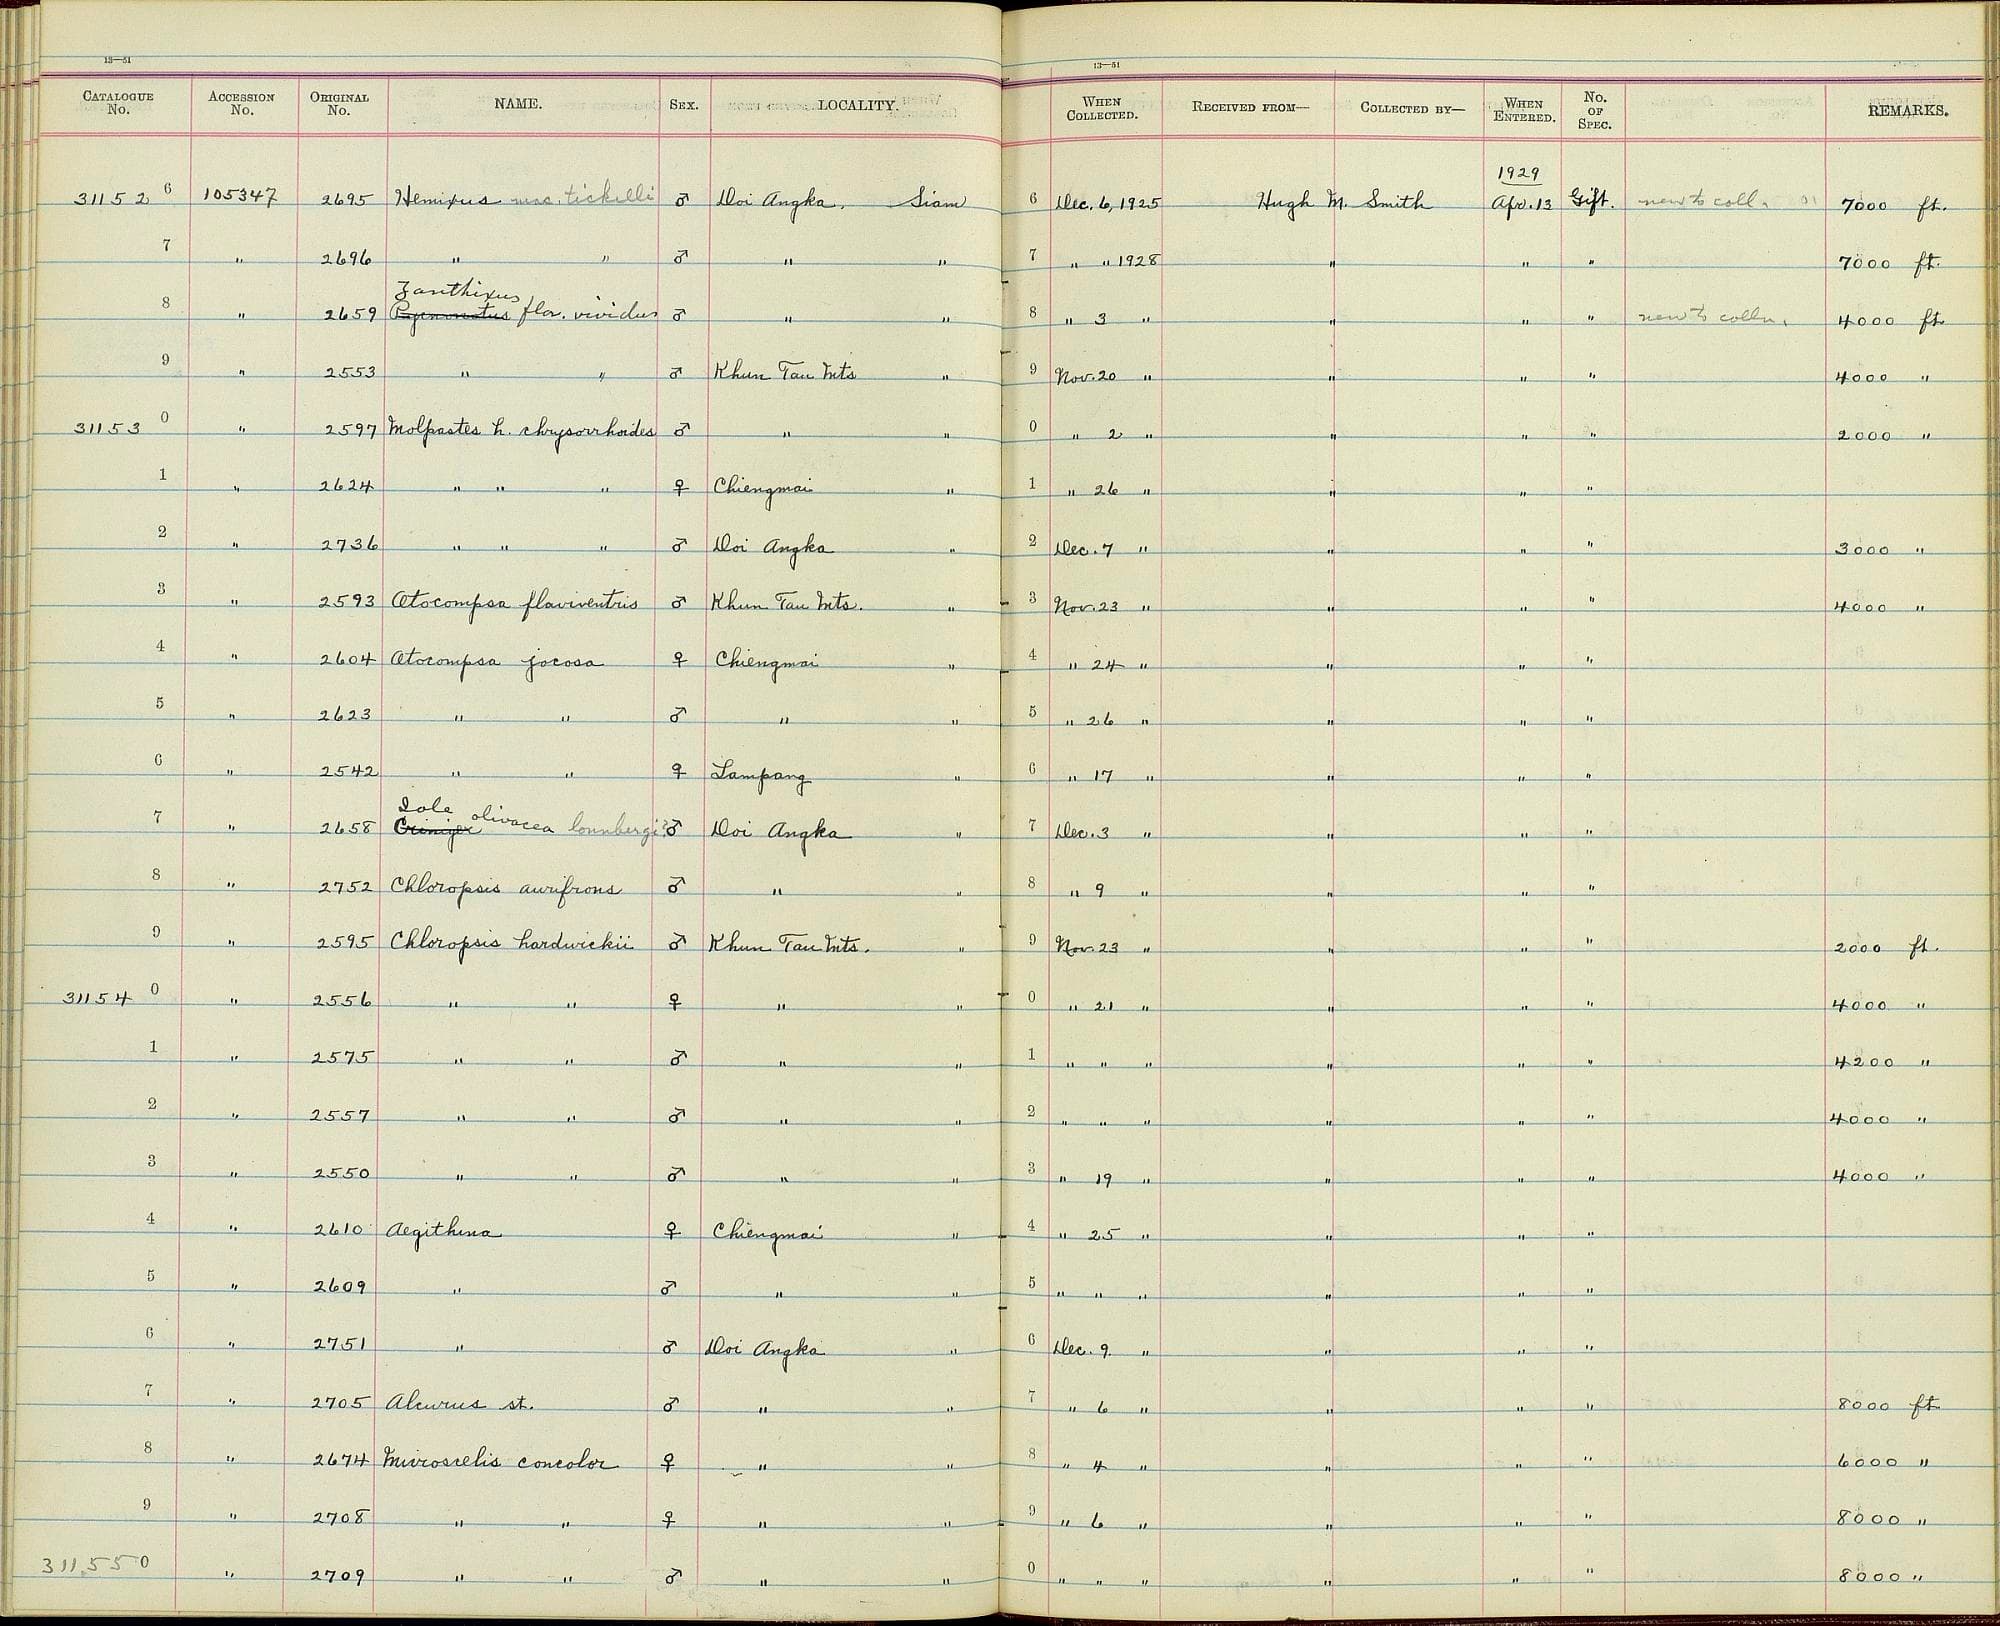 13—51 13—51
CATALOGUE No. ACCESSION No. ORIGINAL No. NAME. SEX. LOCALITY. WHEN COLLECTED. RECEIVED FROM— COLLECTED BY— WHEN ENTERED. No. OF SPEC. REMARKS.
1929
31152 6 105347 2695 Hemixus mac. tickelli ♂ Doi Angka. Siam 6 Dec. 6, 1925 Hugh M. Smith Apr. 13 Gift. new to coll. 7000 ft.
7 " 2696 " " ♂ " " 7 " " 1928 " " " 7000 ft.
Zanthixus
8 " 2659 Pycnonotus flav. vividus ♂ " " 8 " 3 " " " " new to colln. 4000 ft
9 " 2553 " " ♂ Khun Tan Mts " 9 Nov. 20 " " " " 4000 "
31153 0 " 2597 Molpastes h. chrysorrhoides ♂ " " 0 " 2 " " " " 2000 "
1 " 2624 " " " ♀ Chiengmai " 1 " 26 " " " "
2 " 2736 " " " ♂ Doi Angka " 2 Dec. 7 " " " " 3000 "
3 " 2593 Otocompsa flaviventris ♂ Khun Tan Mts. " 3 Nov. 23 " " " " 4000 "
4 " 2604 Otocompsa jocosa ♀ Chiengmai " 4 " 24 " " " "
5 " 2623 " " ♂ " " 5 " 26 " " " "
6 " 2542 " " ♀ Lampang " 6 " 17 " " " "
Iole
7 " 2658 Criniger olivacea lonnbergi? ♂ Doi Angka " 7 Dec. 3 " " " "
8 " 2752 Chloropsis aurifrons ♂ " " 8 " 9 " " " "
9 " 2595 Chloropsis hardwickii ♂ Khun Tan Mts. " 9 Nov. 23 " " " " 2000 ft.
31154 0 " 2556 " " ♀ " " 0 " 21 " " " " 4000 "
1 " 2575 " " ♂ " " 1 " " " " " " 4200 "
2 " 2557 " " ♂ " " 2 " " " " " " 4000 "
3 " 2550 " " ♂ " " 3 " 19 " " " " 4000 "
4 " 2610 Aegithina ♀ Chiengmai " 4 " 25 " " " "
5 " 2609 " ♂ " " 5 " " " " " "
6 " 2751 " ♂ Doi Angka " 6 Dec. 9. " " " "
7 " 2705 Alcurus st. ♂ " " 7 " 6 " " " " 8000 ft
8 " 2674 Microscelis concolor ♀ " " 8 " 4 " " " " 6000 "
9 " 2708 " " ♀ " " 9 " 6 " " " " 8000 "
311,55 0 " 2709 " " ♂ " " 0 " " " " " " 8000 "